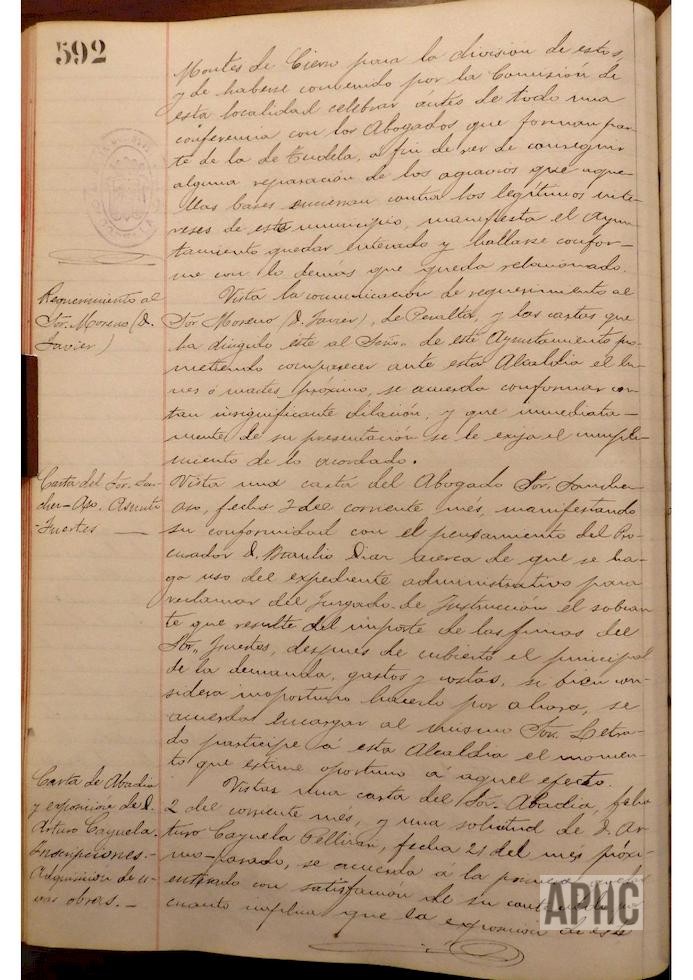 592
Montes de Cierzo para la división de estos,
y de haberse convenido por la Comisión de
esta localidad celebrar ántes de todo una
conferencia con los Abogados que forman par-
te de la de Tudela, a fin de ver de conseguir
alguna reparación de los agravios que aque-
llas bases encierran contra los legítimos inte-
reses de este municipio, manifiesta el Ayun-
tamiento quedar enterado y hallarse confor-
me con lo demás que queda relacionado.
Requerimiento al
Sor. Moreno (D.
Javier)
Vista la comunicación de requerimiento al
Sor Moreno (D. Javier), de Peralta, y las cartas que
ha dirigido éste al de este Ayuntamiento pro-
metiendo comparecer ante esta Alcaldía el lu-
nes ó martes próximo, se acuerda conformar con
tan insignificante dilación, y que inmediata-
mente de su presentación se le exija el cumpli-
miento de lo acordado.
Carta del Sor. San-
chez-Aso. Asunto
-Fuertes
Vista una carta del Abogado Sor. Sanchez
Aso, fecha 2 del corriente més, manifestando
su conformidad con el pensamiento del Pro-
curador D. Braulio Diaz acerca de que se ha-
ga uso del expediente administrativo para
reclamar del Juzgado de Instrucción el sobran-
te que resulte del importe de las fincas del
Sor. Fuertes, después de cubierto el principal
de la demanda, gastos y costas, si bien con-
sidera inoportuno hacerlo por ahora, se
acuerda encargar al mismo Sor. Letra-
do participe á esta Alcaldía el momen-
to que estime oportuno á aquel efecto.
Carta de Abadía
y exposición de D.
Arturo Cayuela.
Inscripciones.-
Adquisición de
obras.-
Vistas una carta del Sor. Abadía, fecha
2 del corriente mes, y una solicitud de D. Ar-
turo Cayuela Pellizari, fecha 21 del més próxi-
mo-pasado, se acuerda á la primera quedar
enterado con satisfacción de su contenido
cuanto implica que la exposición de este
APHC